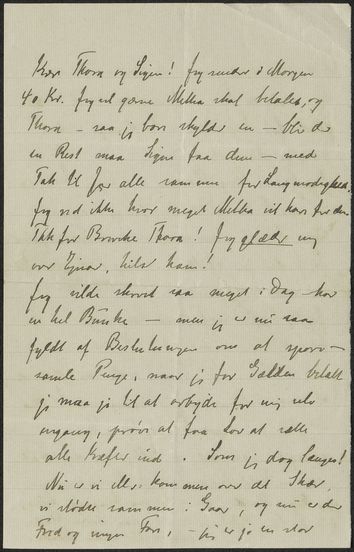 Kære Thora og Signe! Jeg sender i Morgen
40 Kr. Jeg vil gerne Metha skal betales, og
Thora – saa jeg bare skylder en – blir der
en Rest maa Signe faa den – med
Tak til Jer alle sammen for Langmodighed.
Jeg ved ikke hvor meget Metha vil have for den
Tak for Brevet Thora! Jeg glæder mig
over Ejnar, hils ham!
Jeg vilde skrevet saa meget i Dag – har
en hel Bunke – men jeg er nu saa
fyldt af Beslutningen om at spare –
samle Penge, naar jeg faar Gælden betalt
jeg maa jo til at arbejde for mig selv
engang, prøve at faa Lov at sætte
alle Kræfter ind. Som jeg dog længes!
Nu er vi kommen over det Skær,
vi stødte sammen i Gaar, og nu er der
Fred og ingen Fare, – jeg er jo en stor